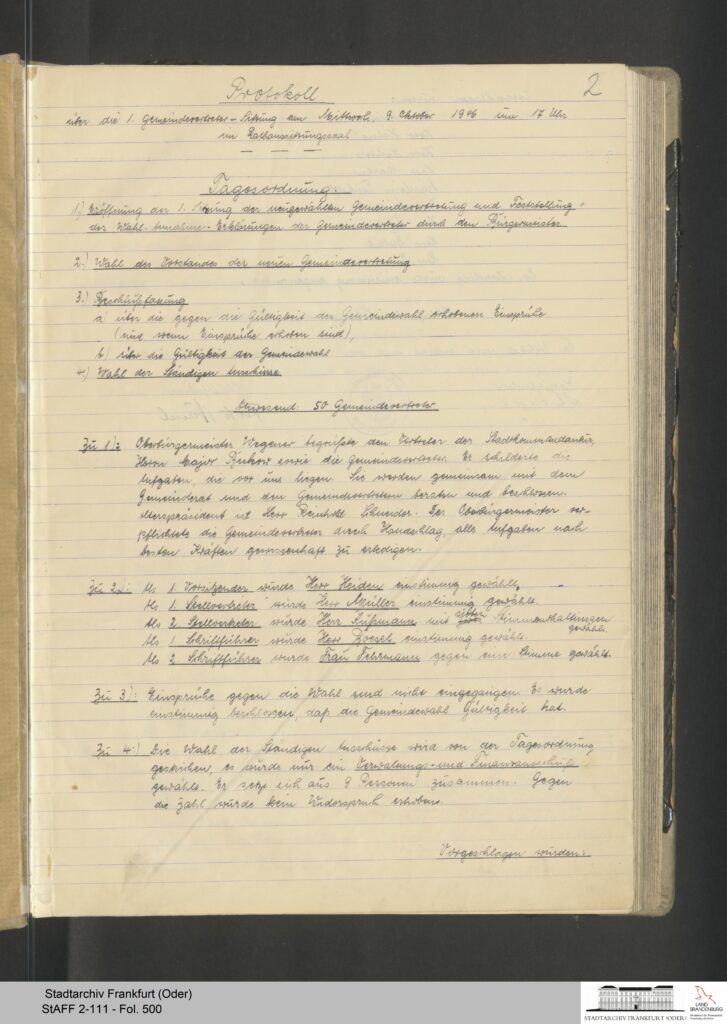 2
Protokoll
über die 1. Gemeindevertreter-Sitzung am Mittwoch, 9. Oktober 1946 um 17 Uhr
im Rathaussitzungssaal
Tagesordnung:
1.) Eröffnung der 1. Sitzung der neugewählten Gemeindevertretung und Feststellung
der Wahl-Annahme-Erklärungen der Gemeindevertreter durch den Bürgermeister
2.) Wahl des Vorstandes der neuen Gemeindevertretung
3.) Beschlußfassung
a) über die gegen die Gültigkeit der Gemeindewahl erhobenen Einsprüche
(nur wenn Einsprüche erhoben sind),
b) über die Gültigkeit der Gemeindewahl
4.) Wahl der Ständigen Ausschüsse
Anwesend: 50 Gemeindevertreter
Zu 1): Oberbürgermeister Wegener begrüßte den Vertreter der Stadtkommandantur,
Herrn Major sowie die Gemeindevertreter. Er schilderte die
Aufgaben, die vor uns liegen. Sie werden gemeinsam mit dem
Gemeinderat und den Gemeindevertretern beraten und beschlossen.
Alterspräsident ist Herr Reinhold Schneider. Der Oberbürgermeister ver-
pflichtete die Gemeindevertreter durch Handschlag, alle Aufgaben nach
besten Kräften gewissenhaft zu erledigen.
Zu 2.): Als 1. Vorsitzender wurde Herr Heiden einstimmig gewählt,
Als 1. Stellvertreter wurde Herr Müller einstimmig gewählt.
Als 2. Stellvertreter wurde Herr Füßmann mit sieben Stimmenthaltungen
gewählt.
Als 1. Schriftführer wurde Herr einstimmig gewählt
Als 2. Schriftführer wurde Frau Fehrmann gegen eine Stimme gewählt.
Zu 3): Einsprüche gegen die Wahl sind nicht eingegangen. Es wurde
einstimmig beschlossen, daß die Gemeindewahl Gültigkeit hat.
Zu 4.) Die Wahl der Ständigen Ausschüsse wird von der Tagesordnung
gestrichen, es wurde nur ein Verwaltungs- und Finanzausschuß
gewählt. Er setzt sich aus 9 Personen zusammen. Gegen
die Zahl wurde kein Widerspruch erhoben.
Vorgeschlagen wurden:
Stadtarchiv Frankfurt (Oder)
StAFF 2-111 - Fol. 500
STADTARCHIV FRANKFURT (ODER)
LAND
BRANDENBURG